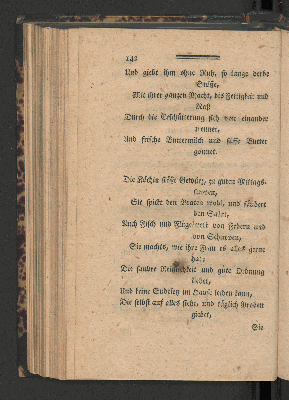 142
Und giebt ihm ohne Ruh, so lange derbe
Stöße,
Mit ihrer ganzen Macht, bis Fettigkeit und
Naß
Durch die Erschütterung sich von einander
trennet,
Und frische Buttermilch und süsse Butter
gönnet.
Die Köchin stößt Gewürz, zu guten Mittags-
Sie spickt den Braten wohl, und säubert
den Salat,
Auch Fisch und Flügelwerk von Federn und
von Schuppen,
Sie machts, wie ihre Frau es alles gerne
hat;
Die saubre Reinlichkeit und gute Ordnung
liebet,
Und keine Sudeley im Hause leiden kann,
Die selbst auf alles sieht, und täglich Proben
giebet,
Sie